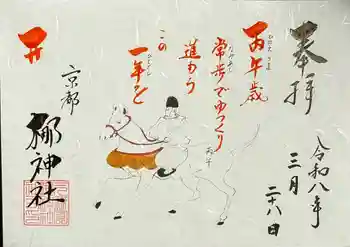 奉拝
令和八年
三月
二十八日
丙午歳
常歩でゆっくり
進もう
この
一年を
京都
梛神社